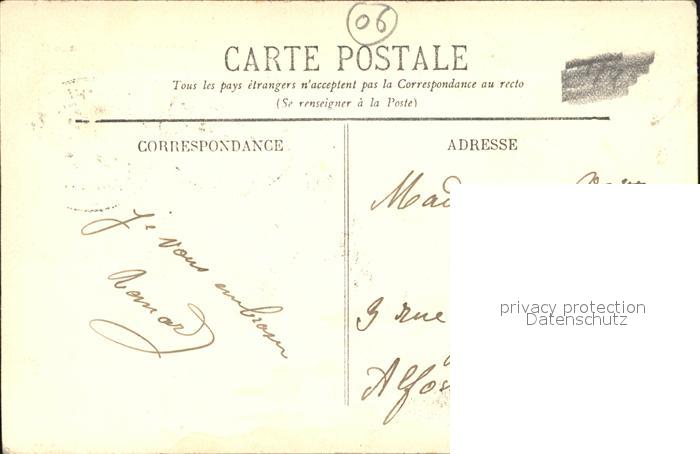 06
CARTE POSTALE
Tous les pays étrangers n'acceptent pas la Correspondance au recto
(Se renseigner à la Poste)
CORRESPONDANCE
ADRESSE
Je vous embrasse
Mad
9 rue
privacy protection
Datenschutz